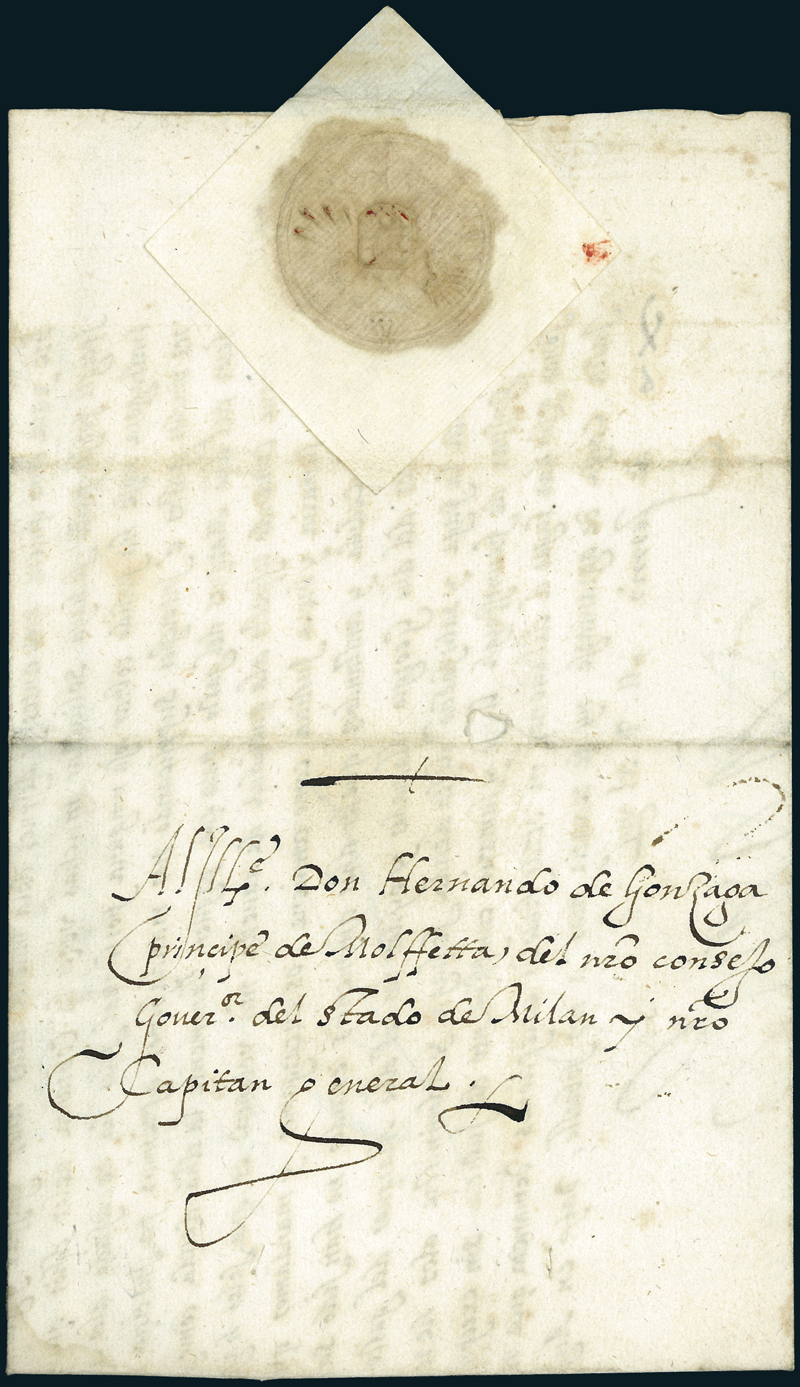 Al Ill.e Don Hernando de Gonzaga
principe de Molffetta, del nro consejo
Gouer.or del stado de Milan y nro
Capitan general.